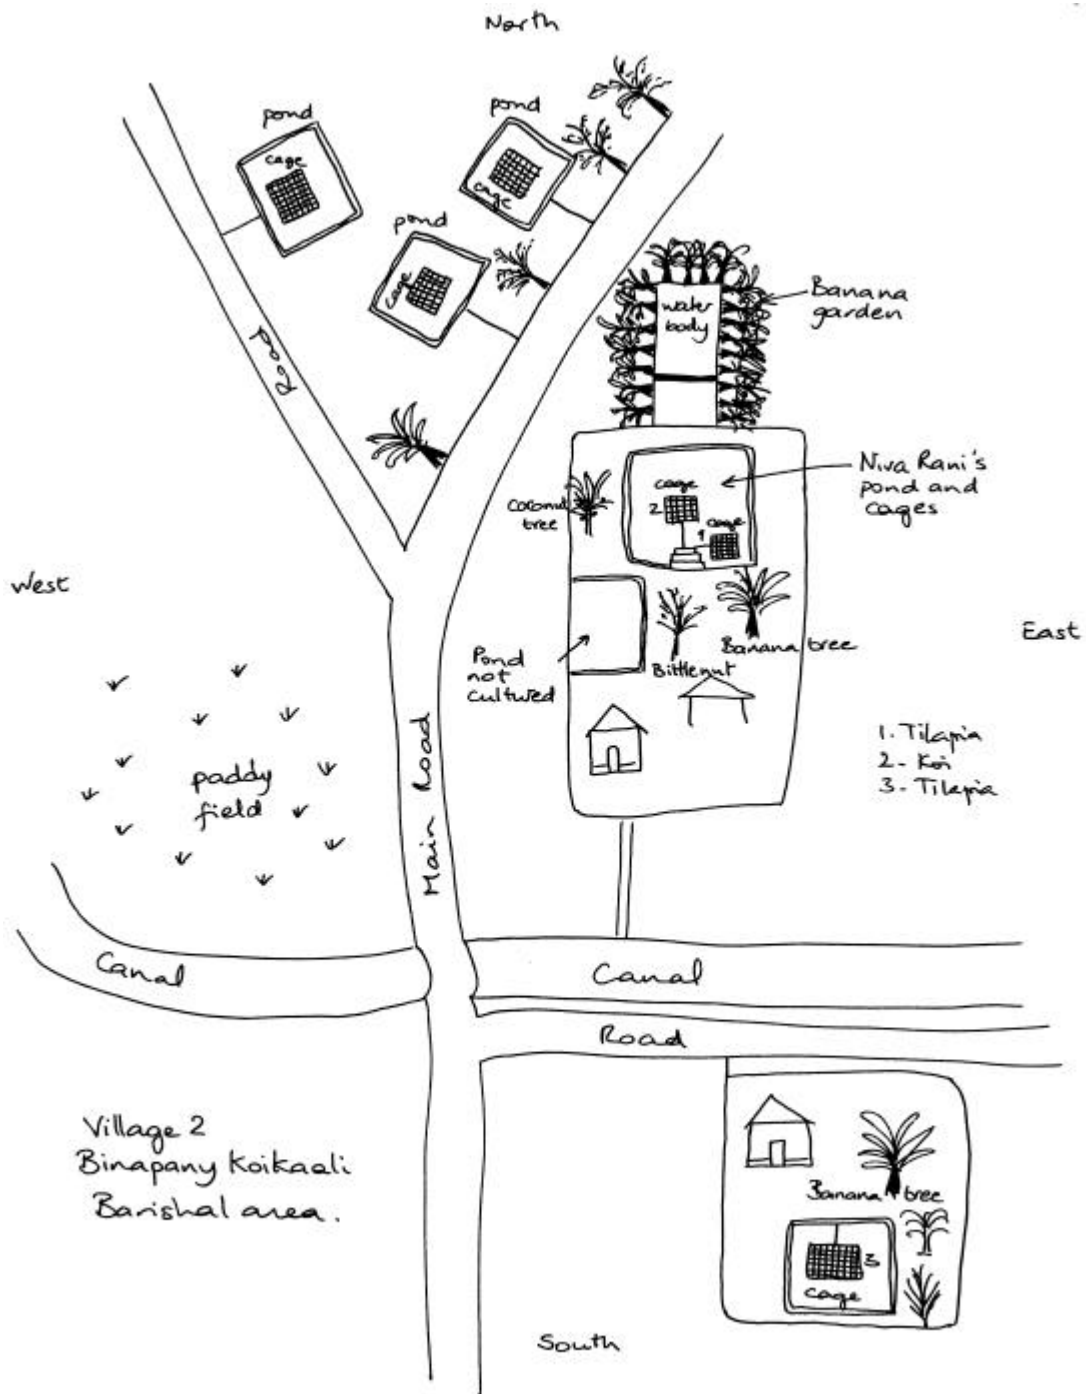 North
pond
cage
pond
cage
pond
cage
Road
water
body
Banana
garden
Niva Rani's
pond and
cages
cage
2
cage
1
Coconut
tree
West
East
Pond
not
cultured
Bittlenut
Banana tree
1. Tilapia
2 - Koi
3 - Tilapia
paddy
field
Main Road
Canal
Canal
Road
Village 2
Binapany Koikaali
Barishal area.
Banana tree
3
cage
South